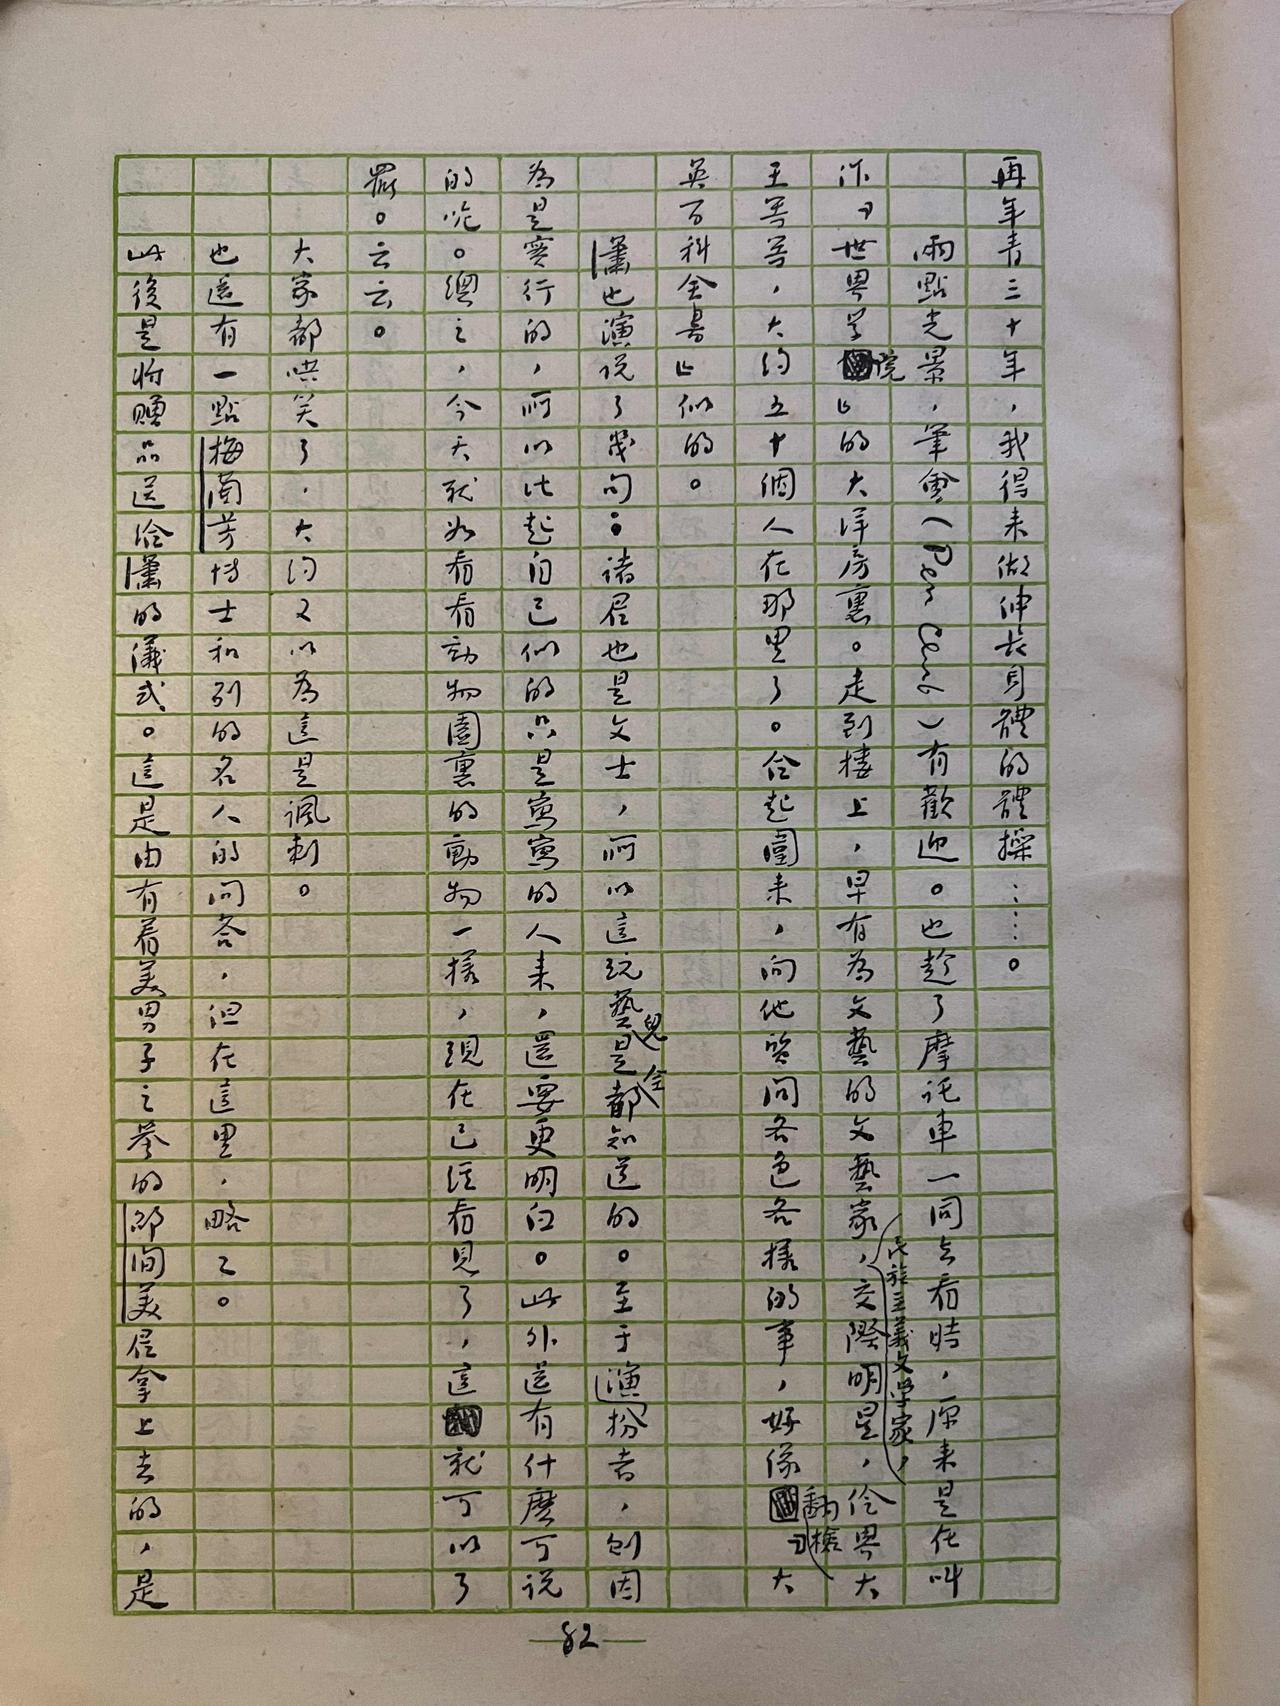 再年青三十年，我得来做伸長身體的體操……。
兩點光景，筆會（Pen Club）有歡迎。也趁了摩託車一同去看時，原来是在叫
作『世界学院』的大洋房裏。走到楼上，早有為文藝的文藝家，民族主義文学家，交際明星，伶界大
王等等，大約五十個人在那里了。合起圍来，向他質問各色各様的事，好像翻檢『大
英百科全書』似的。
蕭也演说了幾句：諸君也是文士，所以這玩藝兒是全都知道的。至于演扮者，則因
為是實行的，所以比起自己似的只是寫寫的人来，還要更明白。此外還有什麽可说
的呢。總之，今天就如看看動物園裏的動物一樣，現在已经看見了，這就可以了
罷。云云。
大家都哄笑了，大约又以為這是諷刺。
也還有一點梅蘭芳博士和别的名人的问答，但在這里，略之。
此後是将贈品送给蕭的儀式。這是由有着美男子之譽的邵洵美君拿上去的，是
82